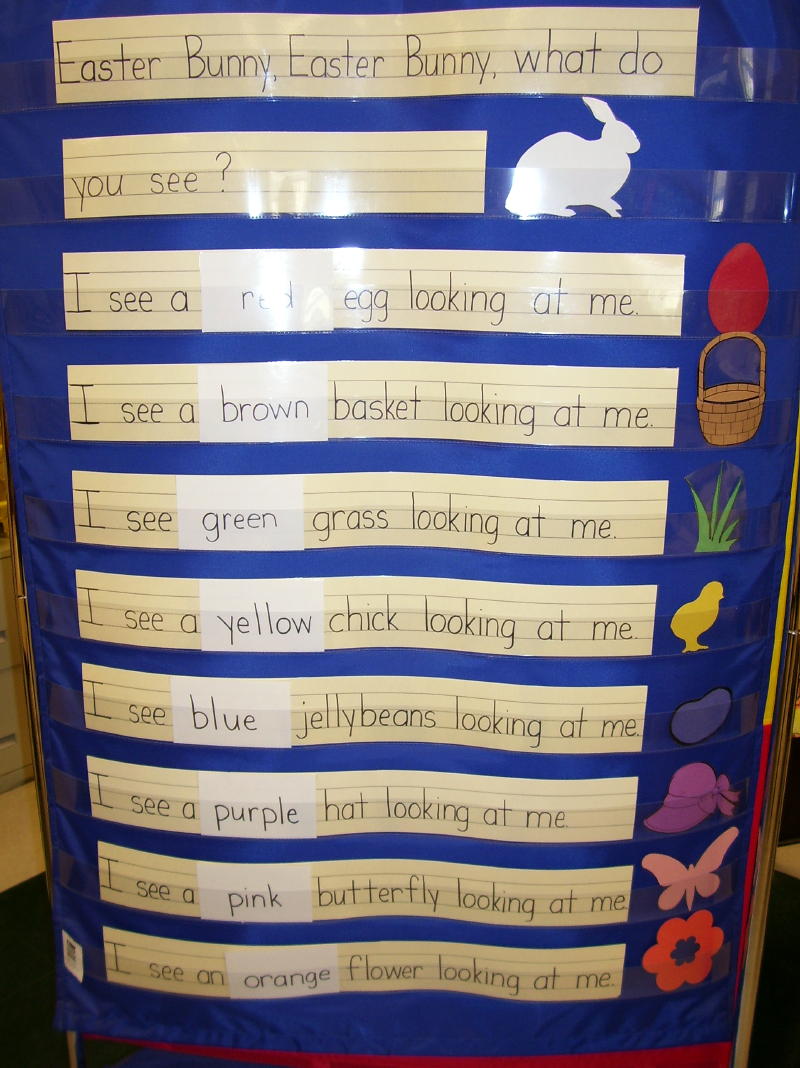 Easter Bunny, Easter Bunny, what do
you see?
I see a red egg looking at me.
I see a brown basket looking at me.
I see green grass looking at me.
I see a yellow chick looking at me.
I see blue jellybeans looking at me.
I see a purple hat looking at me
I see a pink butterfly looking at me.
I see an orange flower looking at me.